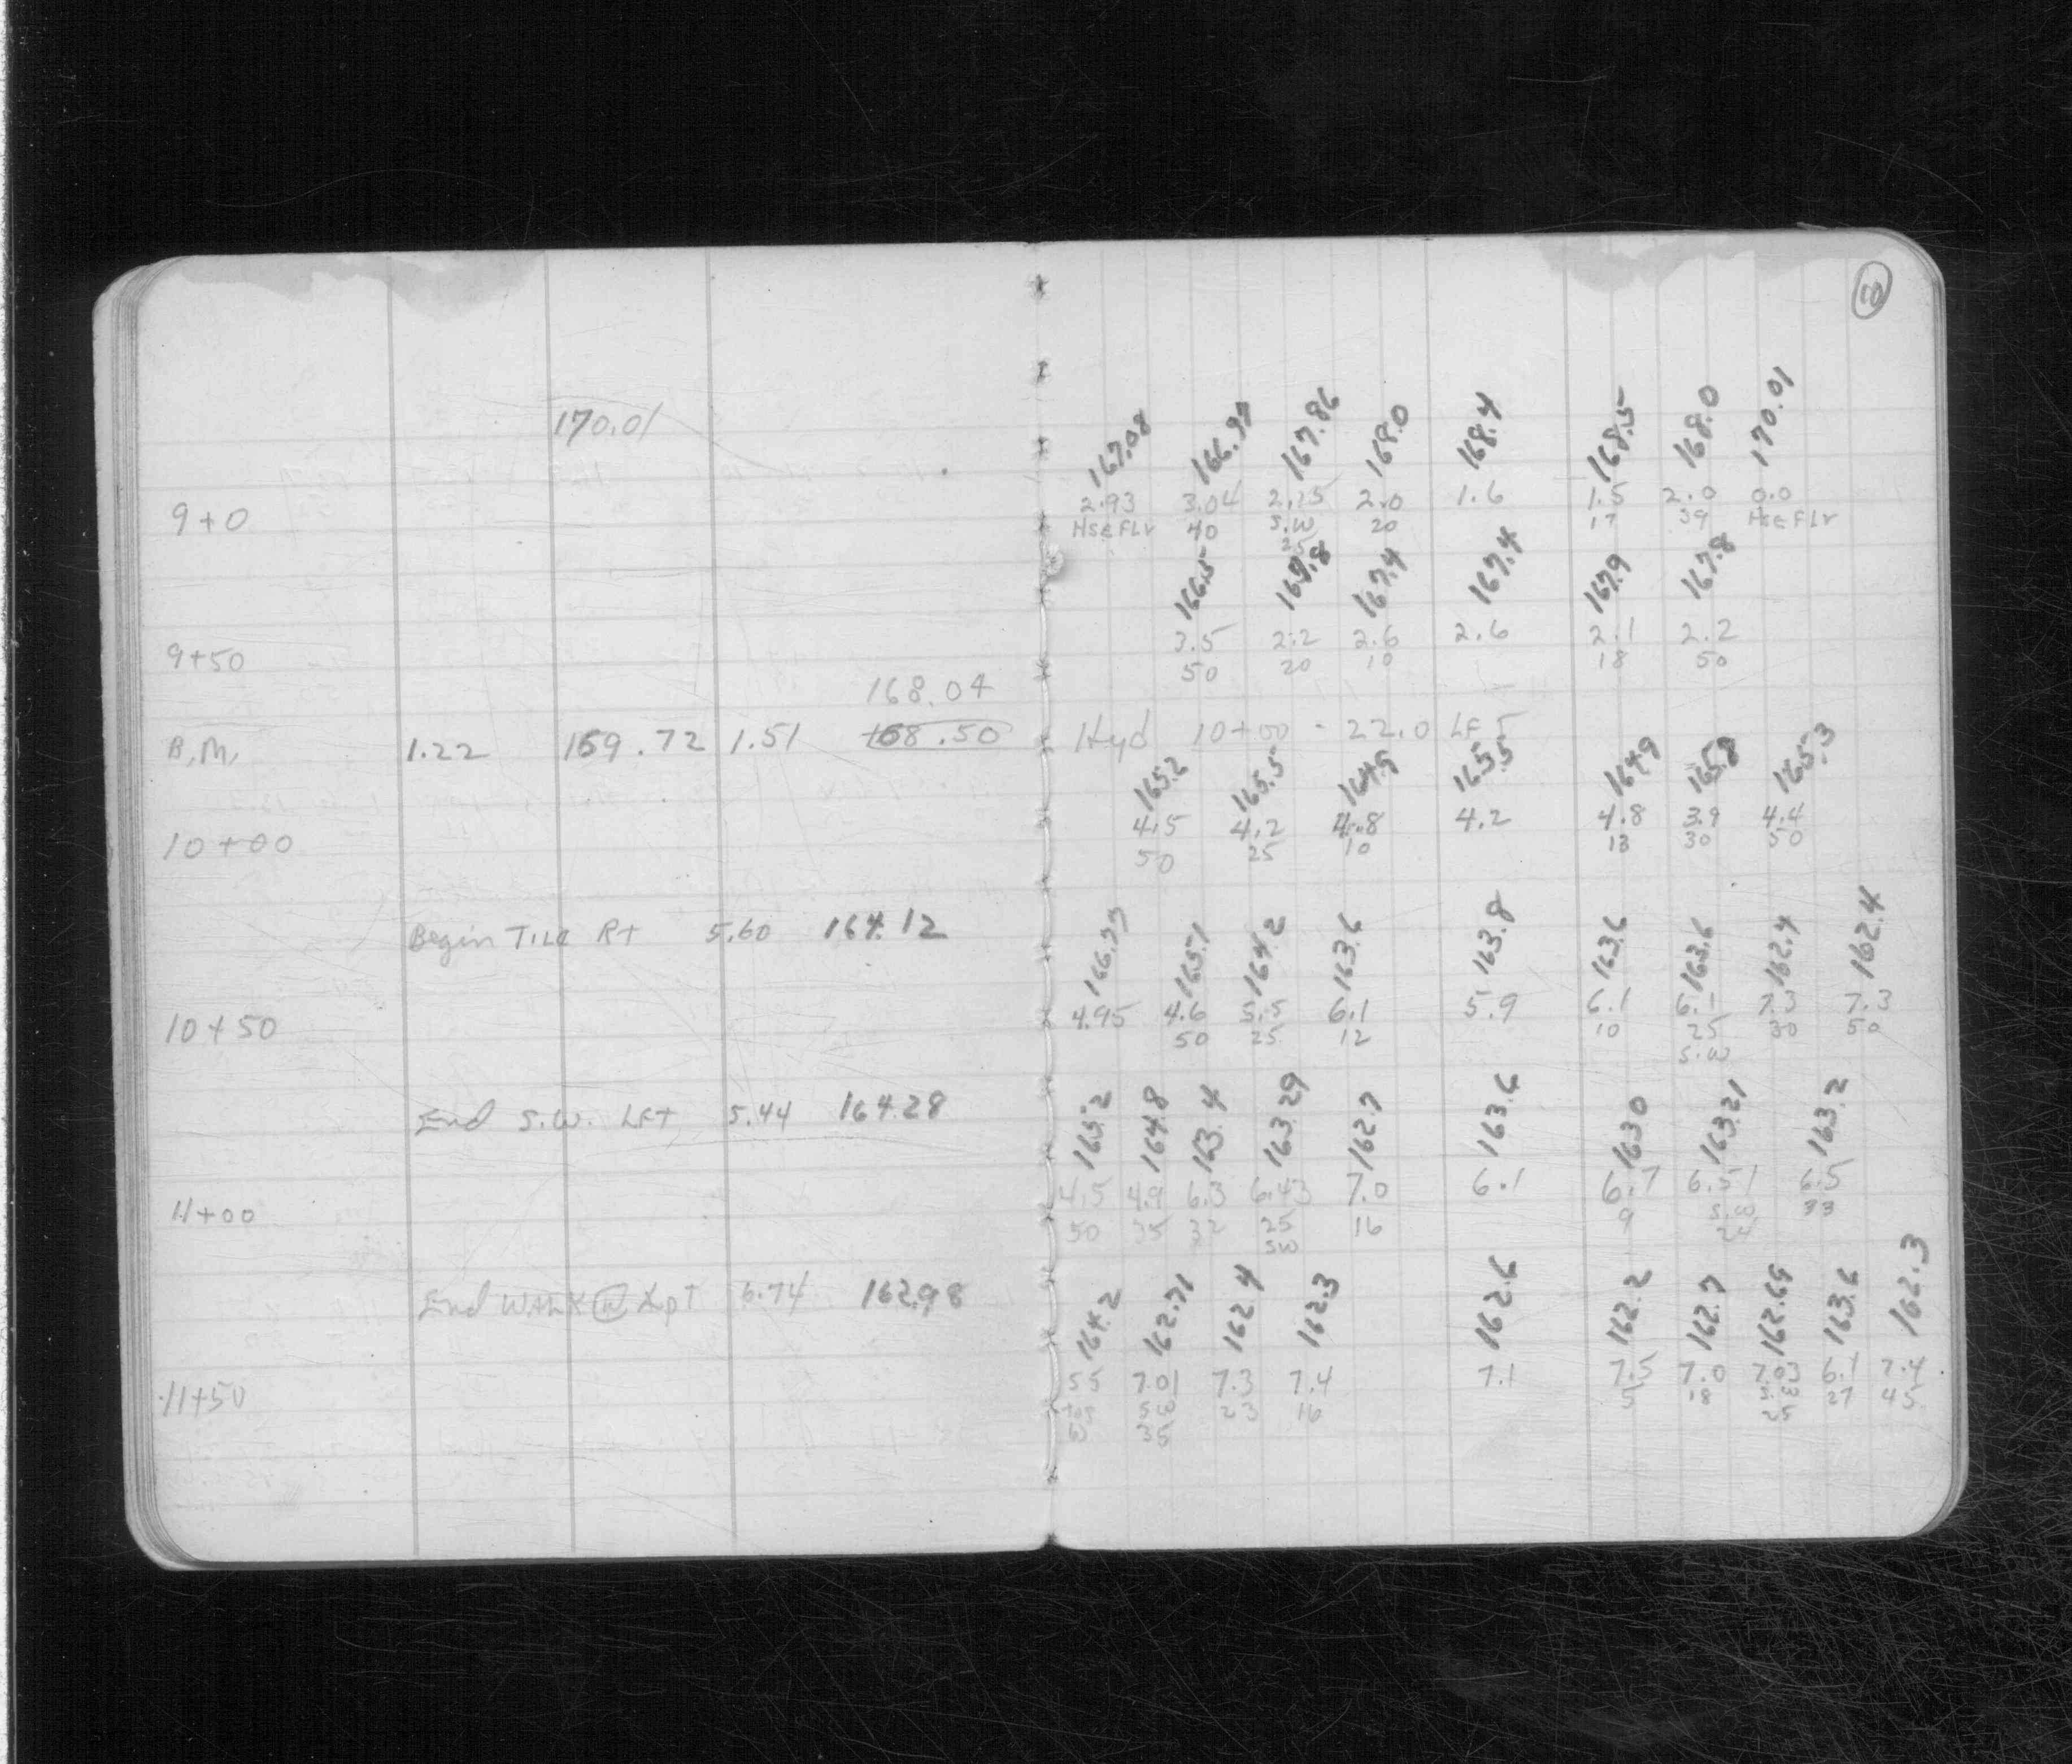 10
170.01
167.08 166.97 167.86 168.0 168.4 168.5 168.0 170.01
2.93 3.04 2.15 2.0 1.6 1.5 2.0 0.0
9+0 HseFlr 40 S.W 20 17 39 HseFlr
25
166.5 167.8 167.4 167.4 167.9 167.8
3.5 2.2 2.6 2.6 2.1 2.2
9+50 50 20 10 18 50
168.04
B.M. 1.22 169.72 1.51 168.50 Hyd 10+00 - 22.0 LFT
165.2 165.5 164.9 165.5 164.9 165.8 165.3
4.5 4.2 4.8 4.2 4.8 3.9 4.4
10+00 50 25 10 13 30 50
Begin Tile Rt 5.60 164.12
165.1 164.2 163.6 163.8 163.6 163.6 162.4 162.4
4.95 4.6 5.5 6.1 5.9 6.1 6.1 7.3 7.3
10+50 50 25 12 10 25 30 50
S.W
End S.W. LFT 5.44 164.28
165.2 164.8 163.4 163.29 162.7 163.6 163.0 163.21 163.2
4.5 4.9 6.3 6.43 7.0 6.1 6.7 6.51 6.5
11+00 50 35 32 25 16 9 S.W 33
SW 24
End WALK @ Xpt 6.74 162.98
164.2 162.71 162.4 162.3 162.6 162.2 162.7 162.69 163.6 162.3
5.5 7.01 7.3 7.4 7.1 7.5 7.0 7.03 6.1 7.4
11+50 23 16 5 18 27 45
35 25